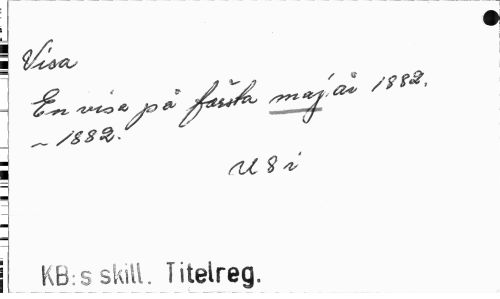 Visa
En visa på första maj år 1882.
~ 1882.
U 8 i
KB:s skill. Titelreg.